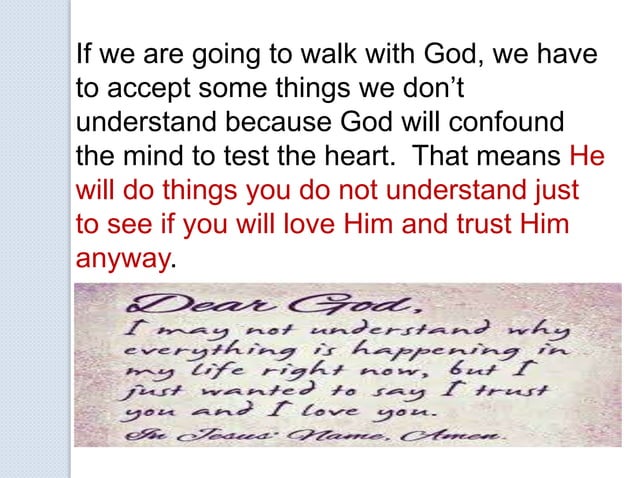 If we are going to walk with God, we have
to accept some things we don’t
understand because God will confound
the mind to test the heart.  That means He
will do things you do not understand just
to see if you will love Him and trust Him
anyway.
Dear God,
I may not understand why
everything is happening in
my life right now, but I
just wanted to say I trust
you and I love you.
In Jesus' Name, Amen.